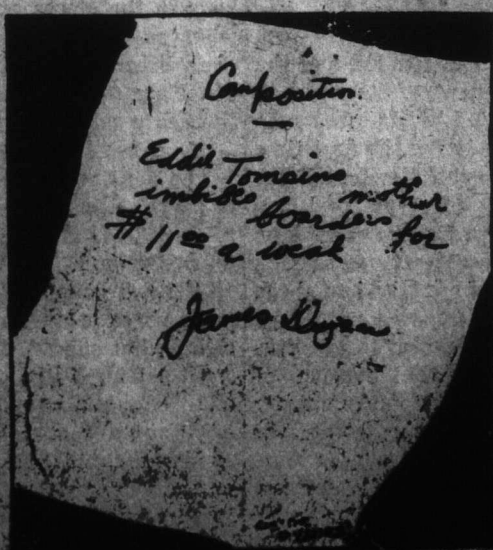 Composition.
Eddie Tomsins mother
imbibes boarders for
$11.00 a week
James